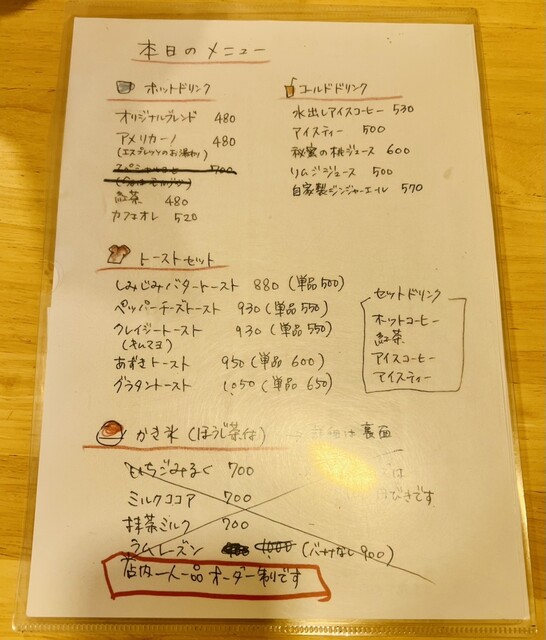 本日のメニュー
ホットドリンク
オリジナルブレンド 480
アメリカーノ 480
(エスプレッソのお湯わり)
700
紅茶 480
カフェオレ 520
コールドドリンク
水出しアイスコーヒー 530
アイスティー 500
秘蜜の桃ジュース 600
リムジジュース 500
自家製ジンジャーエール 570
トーストセット
しみじみバタートースト 880 (単品500)
ペッパーチーズトースト 930 (単品550)
クレイジートースト 930 (単品550)
(キムマヨ)
あずきトースト 950 (単品600)
グラタントースト 1,050 (単品650)
セットドリンク
ホットコーヒー
紅茶
アイスコーヒー
アイスティー
かき氷 (ほうじ茶付) → 詳細は裏面
いちごみるく 700
ミルクココア 700
抹茶ミルク 700
ラムレーズン 1,000 (バナナなし900)
は
びきです
店内一人一品オーダー制です